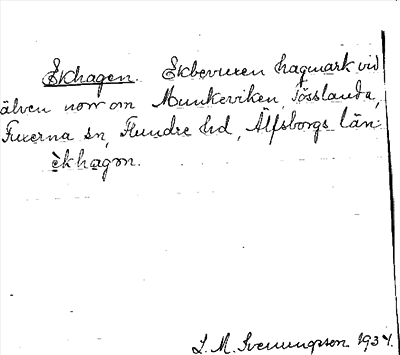 Ekhagen. Ekbevuxen hagmark vid
älven norr om Munkeviken, Tösslanda,
Fuxerna sn, Flundre hd, Älfsborgs län
èkhagơn.
L. M. Svenungsson 1937.